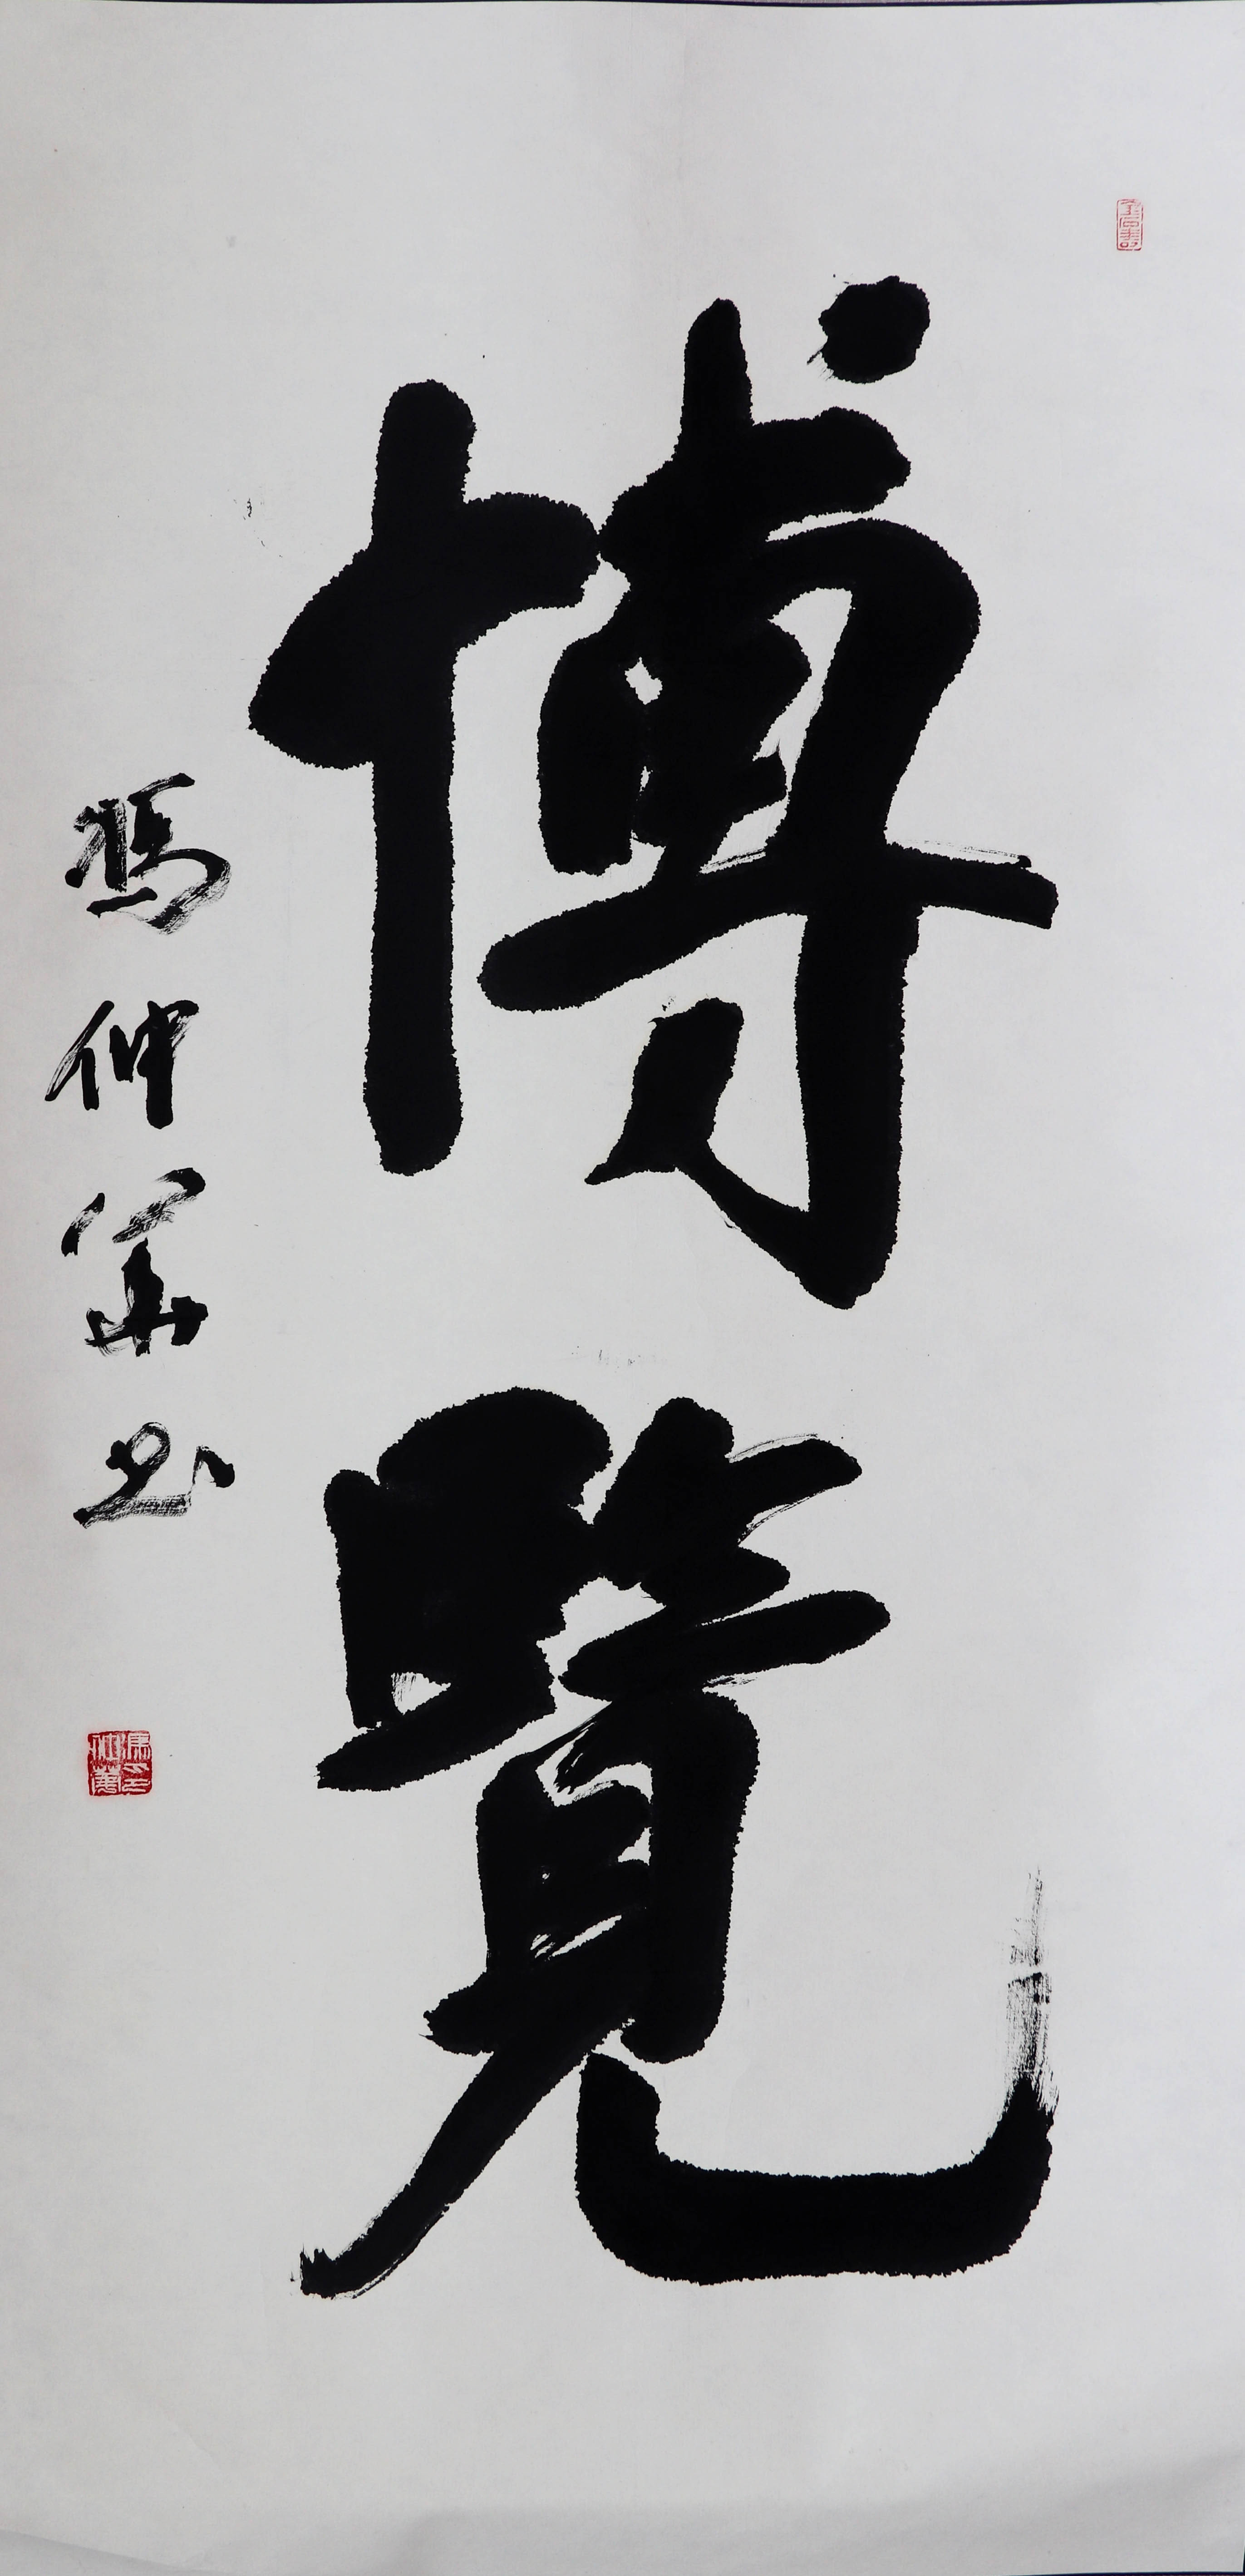 博覽
馮仲華书